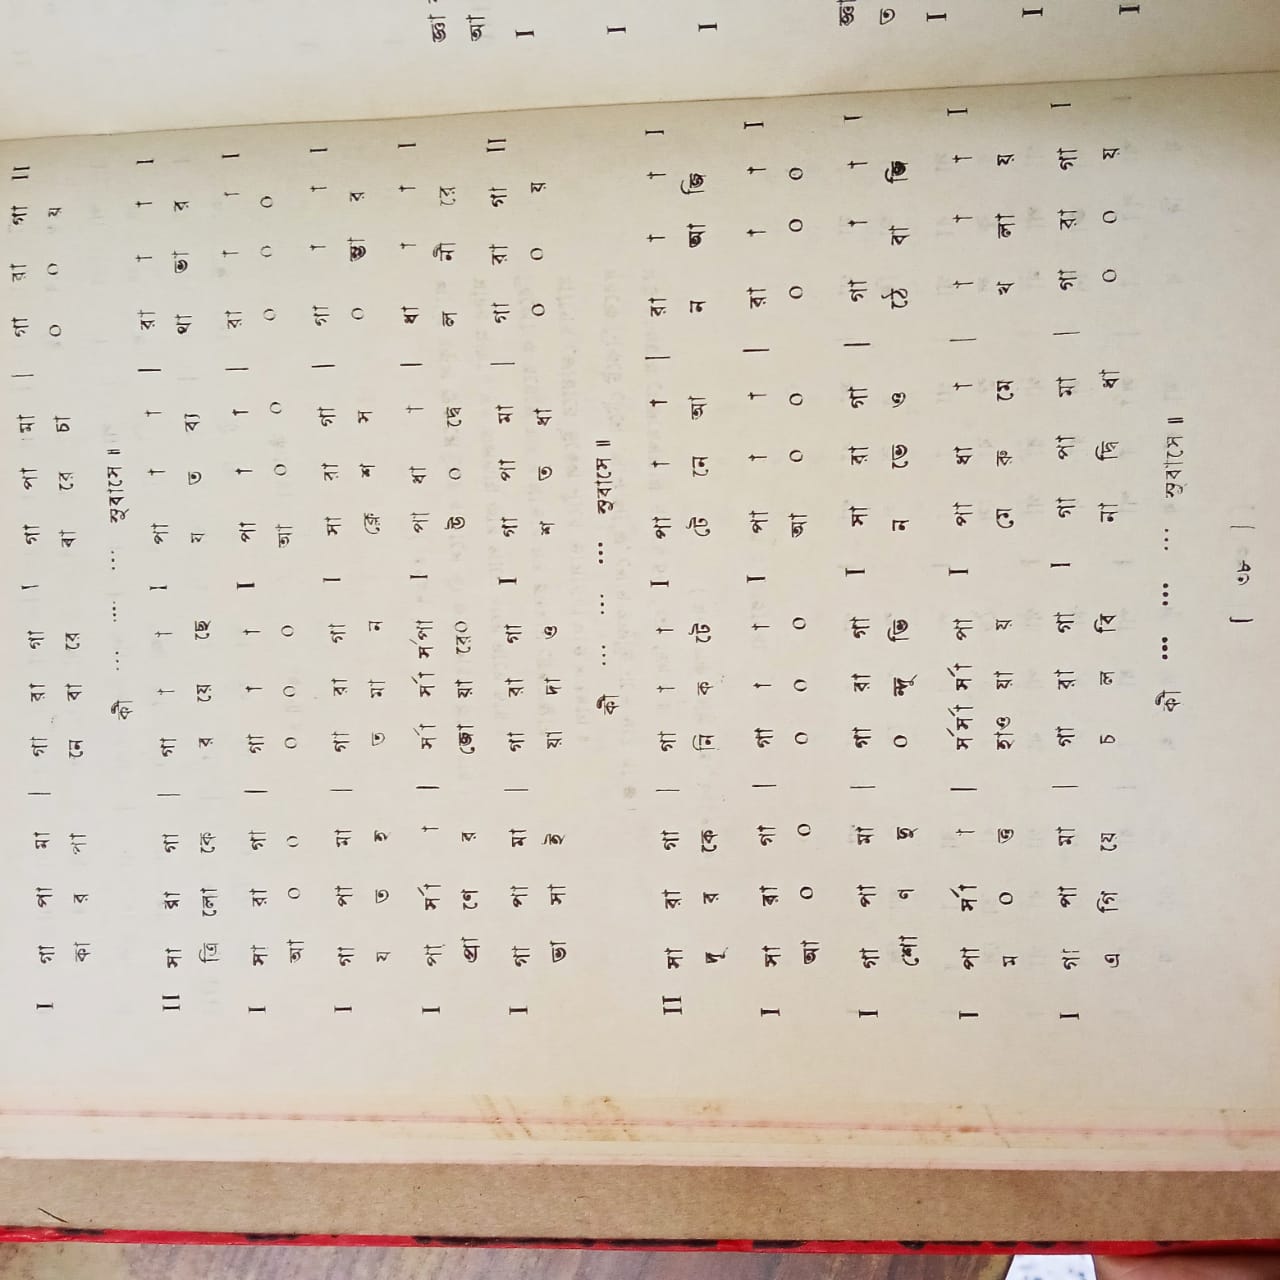 I গা পা মা | গা রা গা I গা পা মা | গা রা গা II
কা র পা নে বা রে বা রে চা ০ ০ য়
কী ... .... ... সুবাসে॥
II সা রা গা | গা † † I পা † † | রা † † I
ত্রি লো কে র য়ে ছে য ত ব্য থা ভা র
I সা রা গা | গা † † I পা † † | রা † † I
আ ০ ০ ০ ০ ০ আ ০ ০ ০ ০ ০
I গা পা মা | গা রা গা I সা রা গা | গা † † I
য ত হ ত মা ন ক্লে শ স ০ ম্ভা র
I পা র্সা † | র্সা র্সা র্সপা I পা ধা † | ধা † † I
প্রা ণে র জো য়া রে০ উ ০ ছে ল নী রে
I গা পা মা | গা রা গা I গা পা মা | গা রা গা II
ভা সা ই য়া দা ও শ ত ধা ০ ০ য়
কী ... ... ... সুবাসে॥
II সা রা গা | গা † † I পা † † | রা † † I
দূ র কে নি ক টে টে নে আ ন আ জি
I সা রা গা | গা † † I পা † † | রা † † I
আ ০ ০ ০ ০ ০ আ ০ ০ ০ ০ ০
I গা পা মা | গা রা গা I সা রা গা | গা † † I
শো ণ দু ০ ন্দু ভি ন ভে ও ঠে বা জি
I পা র্সা † | র্সর্সা র্সা পা I পা ধা † | † † † I
ম ০ ত্ত হাও য়া য় মে রু মে খ লা য়
I গা পা মা | গা রা গা I গা পা মা | গা রা গা I
এ গি য়ে চ ল বি না দ্বি ধা ০ ০ য়
কী ... ... ... সুবাসে॥
[ ৩৮ ]